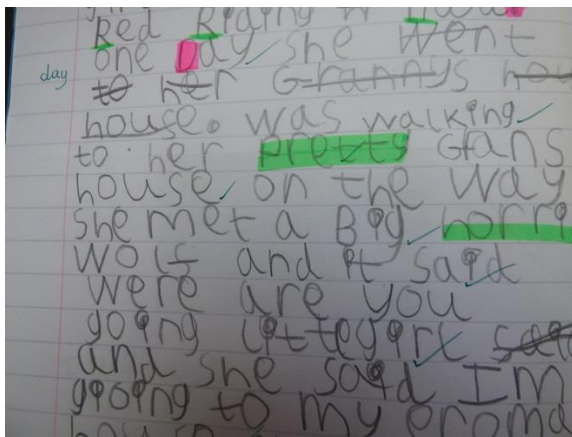 Red Riding
one Day she went
day
to her Grannys hou
house. was walking
to her pretty Grans
house on the way
she met a Big horri
Wolf and it said
were are you
going littegirl said
and she said Im
going to my